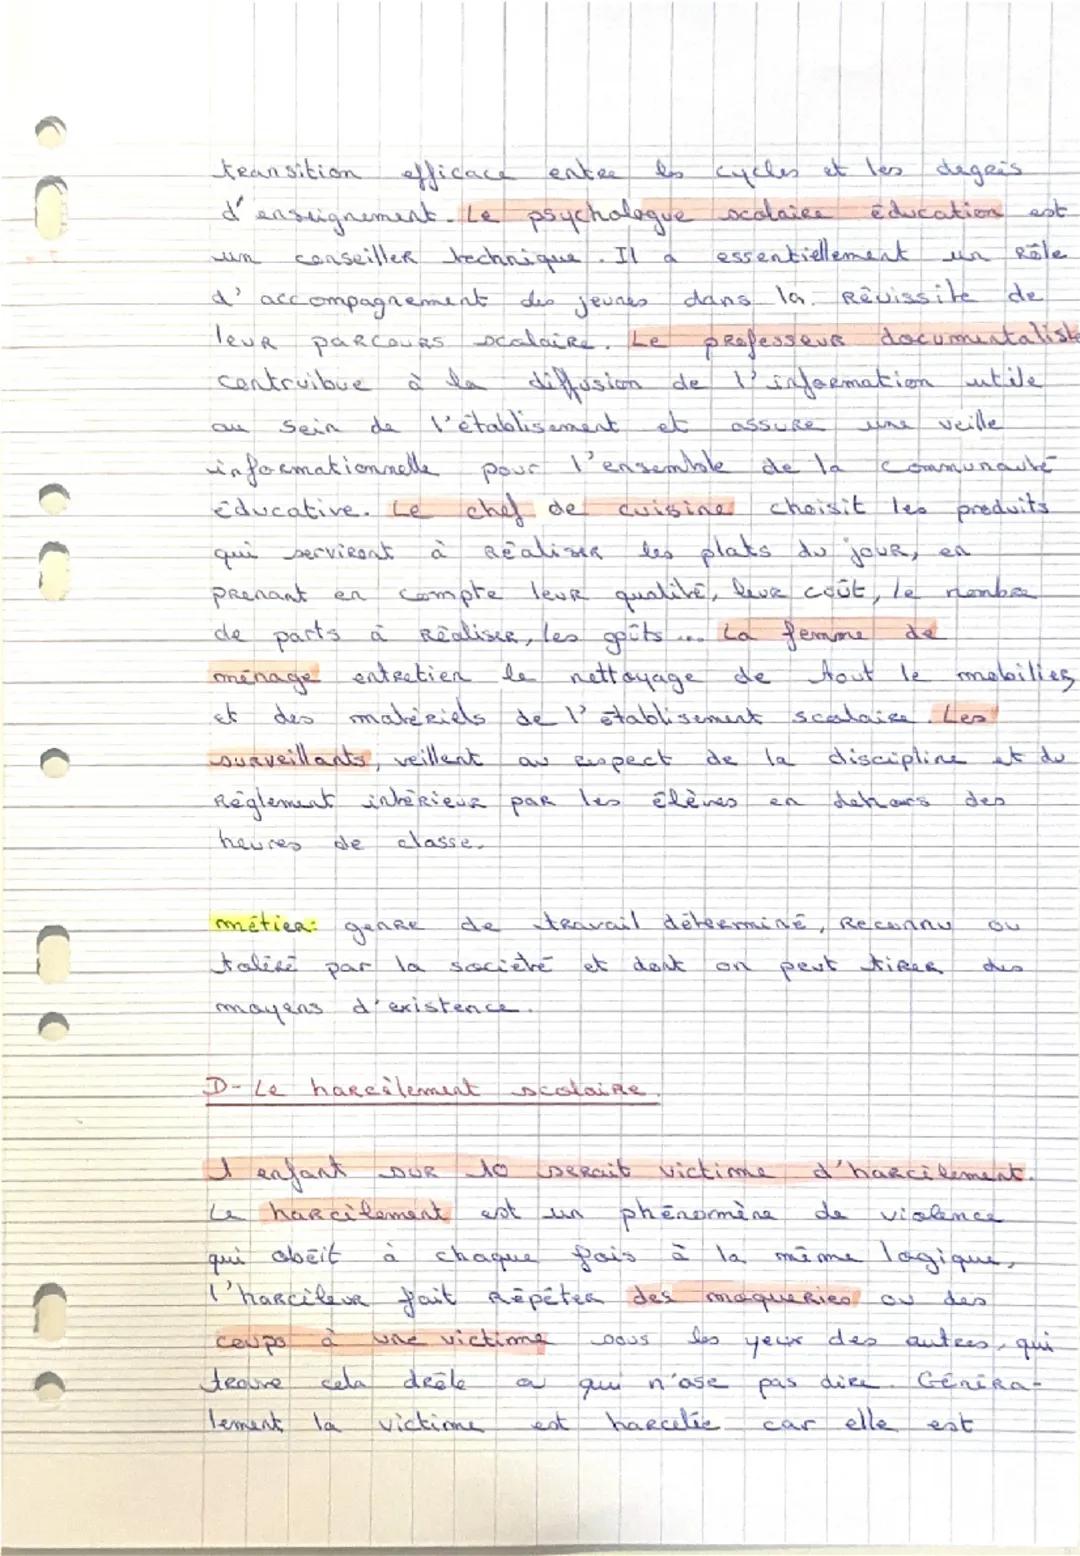 transition efficace entre les cycles et les degrès
d'enseignement. Le psychologue scolaire éducation est
un conseiller technique. Il a essentiellement un rôle
d'accompagnement des jeunes dans la réuissite de
leur parcours scolaire. Le professeur documentaliste
contruibue à la diffusion de l'information utile
au sein de l'établisement et assure une veille
informationnelle pour l'ensemble de la communauté
éducative. Le chef de cuisine choisit les produits
qui serviront à réaliser les plats du jour, en
prenant en compte leur qualité, leur coût, le nombre
de parts à réaliser, les goûts ... La femme de
ménage entretien le nettoyage de tout le mobilier
et des matériels de l'établisement scolaire. Les
surveillants, veillent au respect de la discipline et du
Réglement intérieur par les élèves en dehors des
heures de classe.
métier: genre de travail déterminé, reconnu ou
toléré par la société et dont on peut tirer des
moyens d'existence.
D- Le harcèlement scolaire.
1 enfant sur 10 serait victime d'harcèlement.
Le harcèlement est un phénomène de violence
qui obéit à chaque fois à la même logique,
l'harceleur fait répéter des moqueries ou des
coups à une victime sous les yeux des autres, qui
trouve cela drôle o qui n'ose pas dire. Généra-
lement la victime est harcelée car elle est